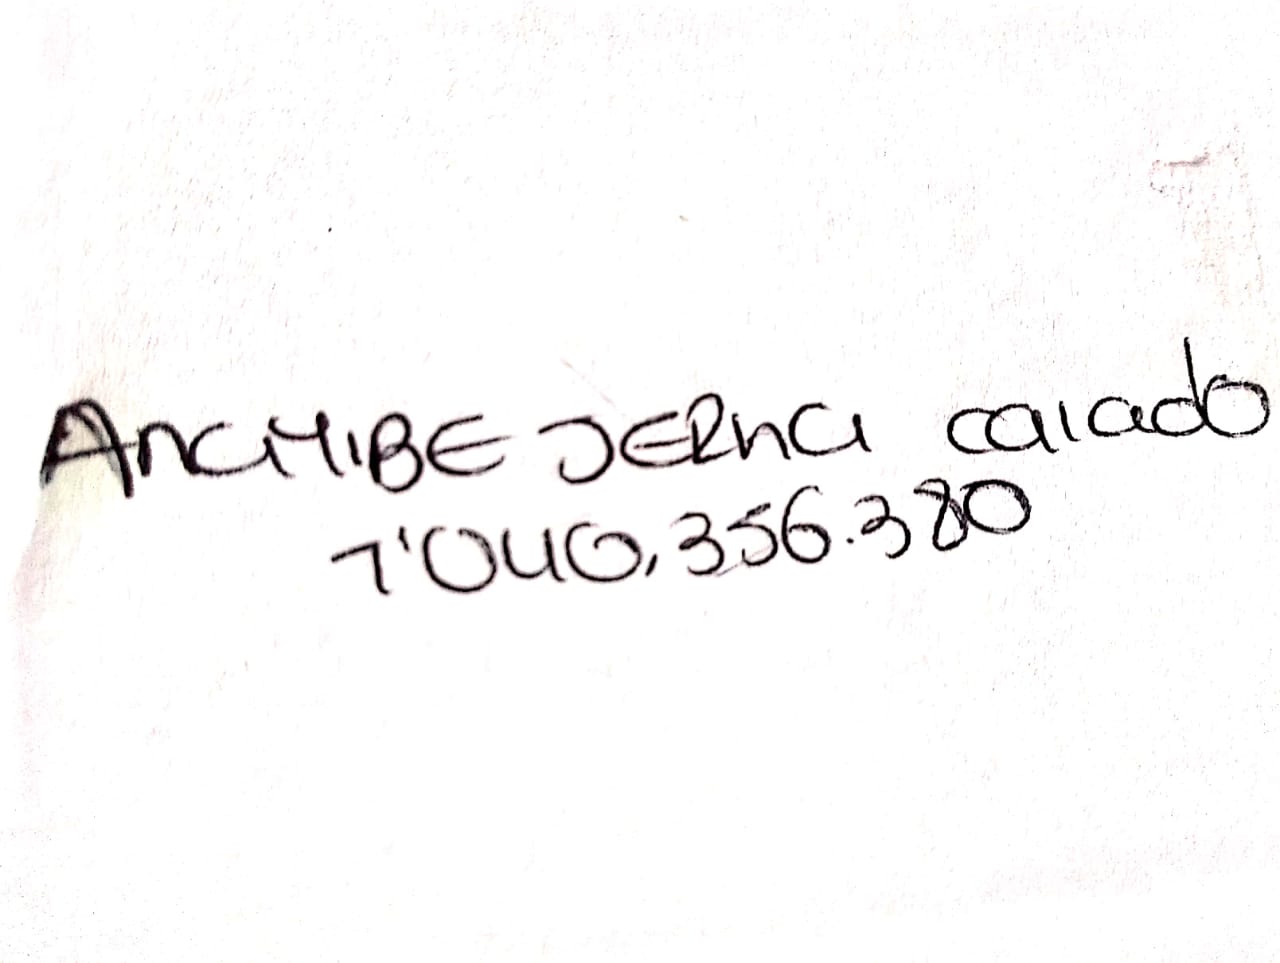 AnaYIBE SERNa caiado
1'040.356.380